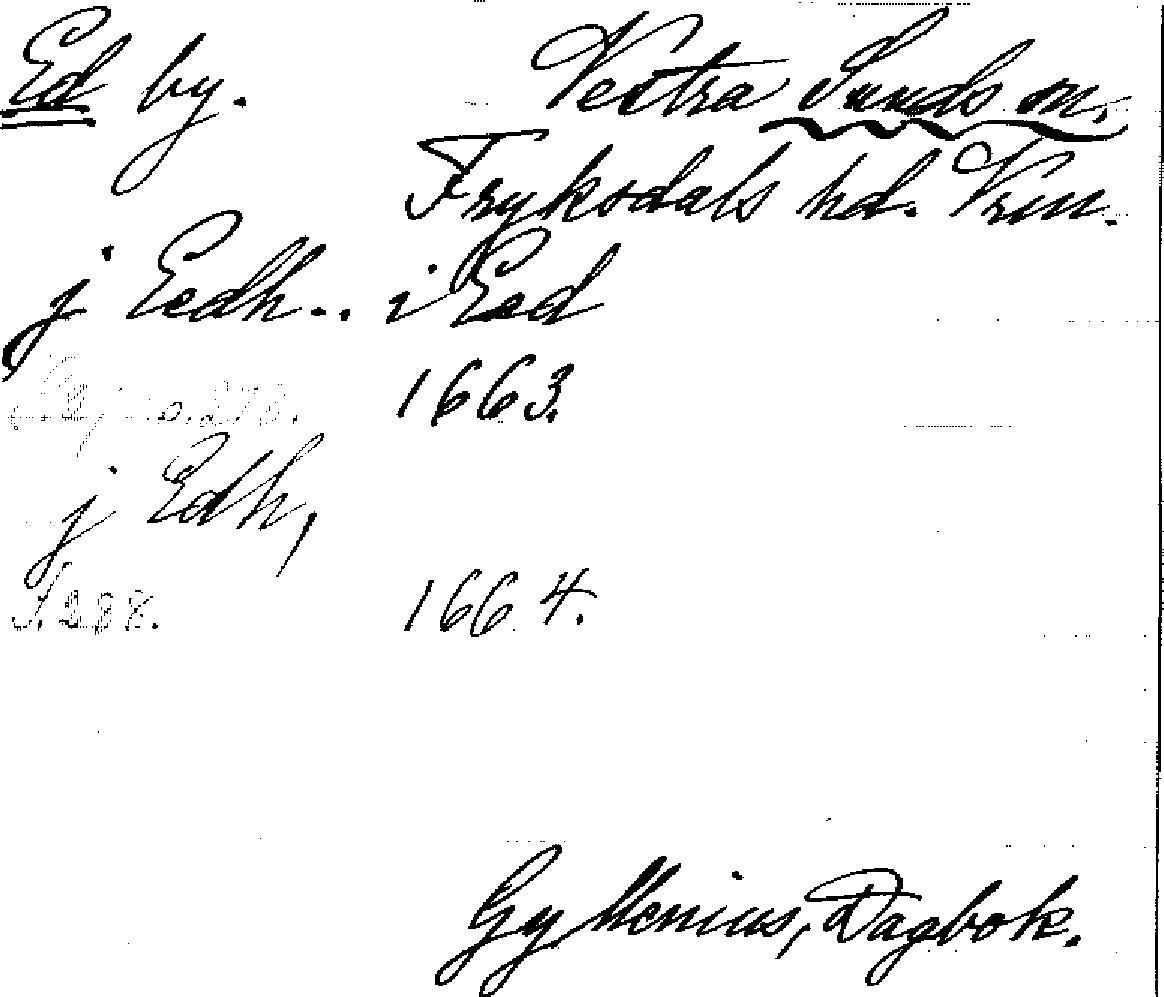 Ed by. Vestra Sunds sn.
Fryksdals hd. Vrm.
j Eedh.. i Eed
1663.
j Edh,
S. 288. 1664.
Gyllenius, Dagbok.